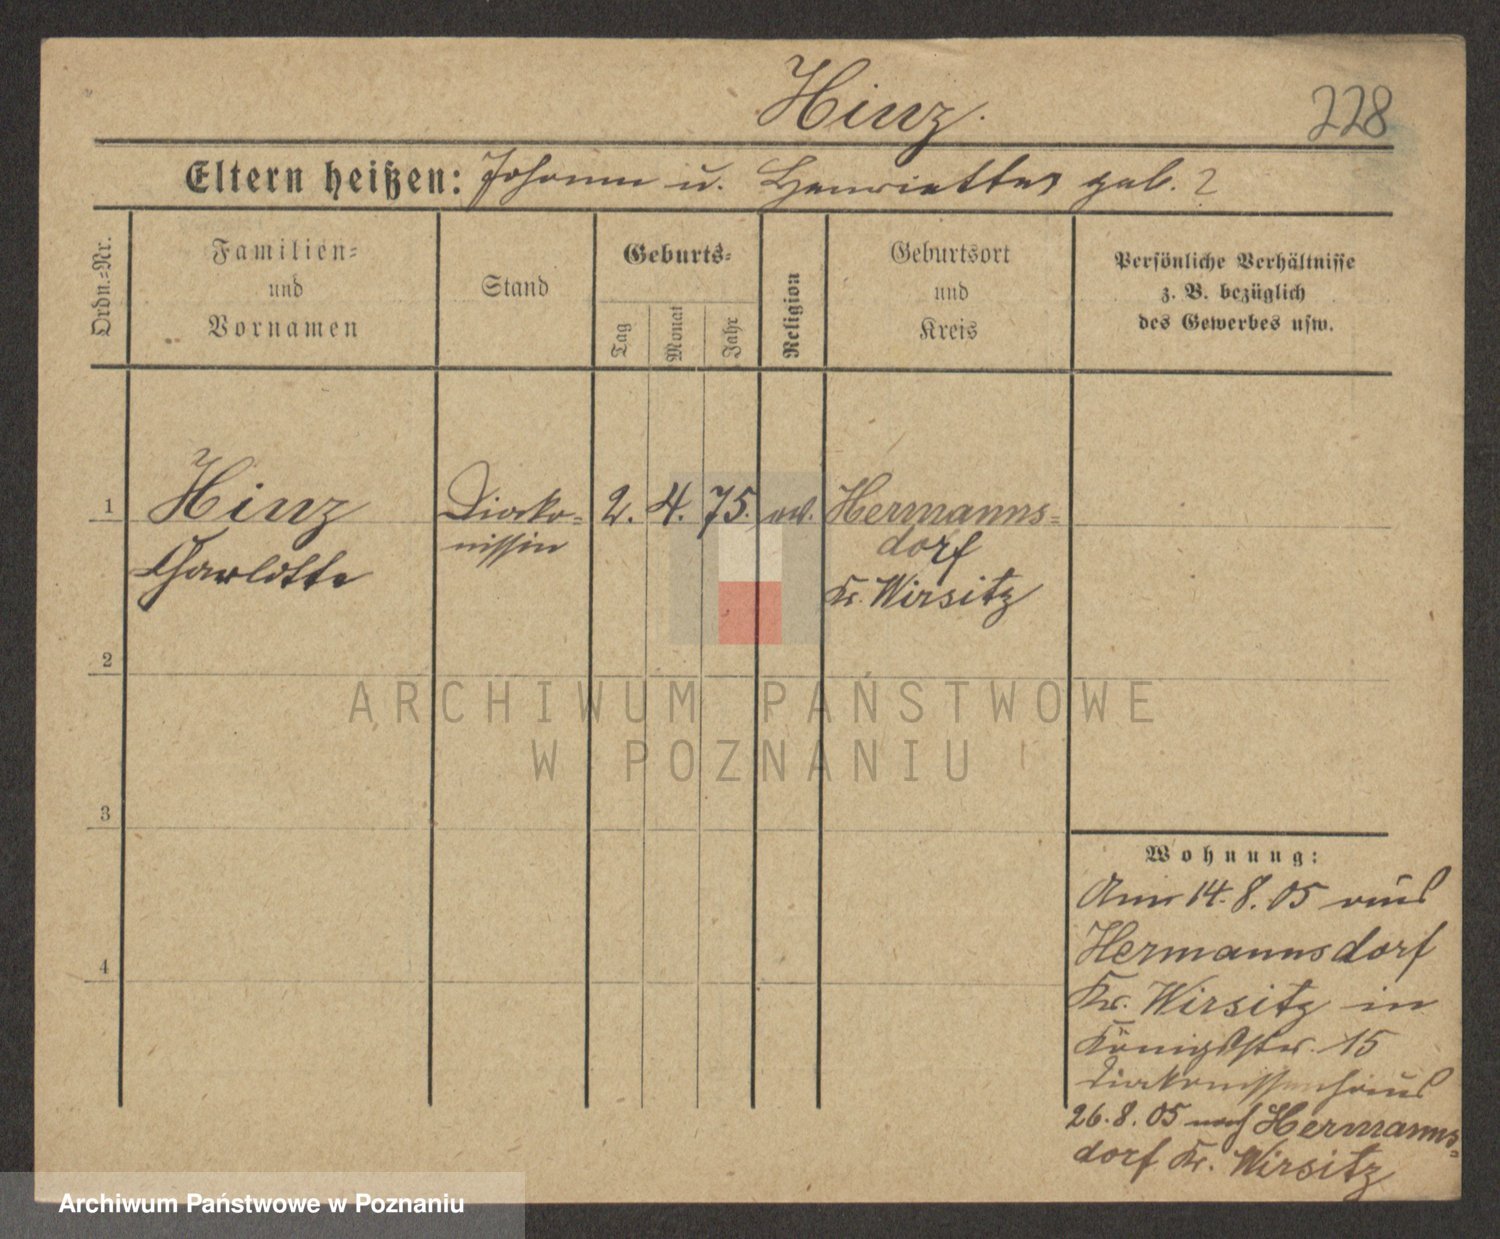 Hinz.
228
Eltern heißen: Johann u. Henriette geb. ?
Ordn.=Nr.
Familien=
und
Vornamen
Stand
Geburts=
Tag
Monat
Jahr
Religion
Geburtsort
und
Kreis
Persönliche Verhältnisse
z. B. bezüglich
des Gewerbes usw.
1
Hinz
Charlotte
Diako=
nissin
2. 4. 75. ev.
Hermanns=
dorf
Kr. Wirsitz
2
3
4
Wohnung:
Am 14. 8. 05 aus
Hermannsdorf
Kr. Wirsitz in
Königstr. 15
Diakonissenhaus
26. 8. 05 nach Hermanns=
dorf Kr. Wirsitz
ARCHIWUM PAŃSTWOWE
W POZNANIU
Archiwum Państwowe w Poznaniu